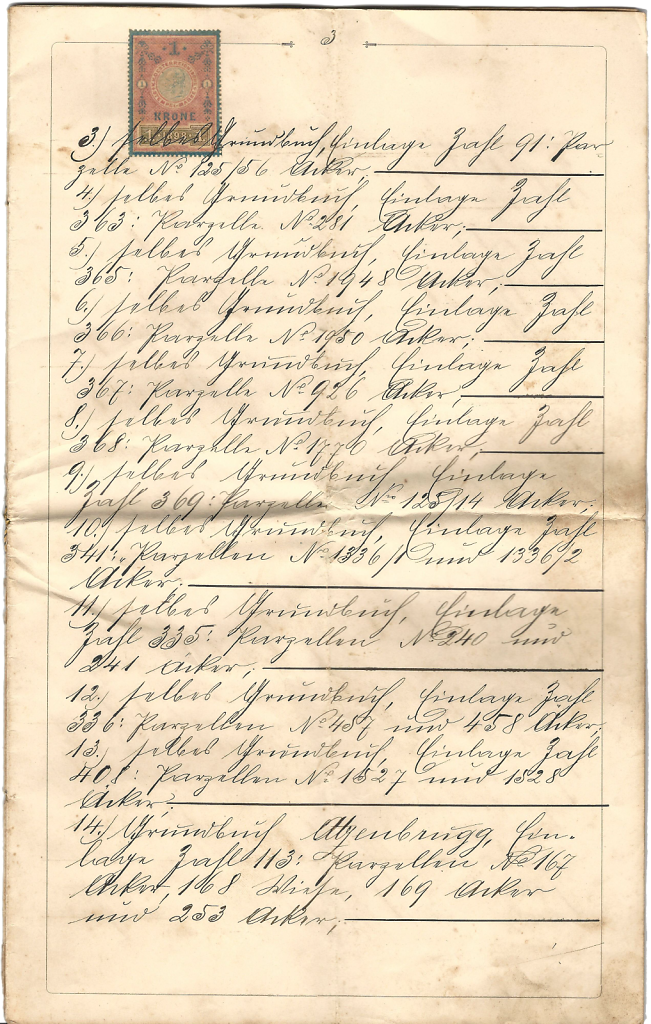 3
1
KRONE
1 1898 1
3.) selbes Grundbuch, Einlage Zahl 91: Par
zelle No 125/56 Acker.
4.) selbes Grundbuch, Einlage Zahl
363: Parzelle No 281 Acker;
5.) selbes Grundbuch, Einlage Zahl
365: Parzelle No 1948 Acker;
6.) selbes Grundbuch, Einlage Zahl
366: Parzelle No 1950 Acker;
7.) selbes Grundbuch, Einlage Zahl
367: Parzelle No 926 Acker;
8.) selbes Grundbuch, Einlage Zahl
368: Parzelle No 1770 Acker;
9.) selbes Grundbuch, Einlage
Zahl 369: Parzelle No 125/14 Acker;
10.) selbes Grundbuch, Einlage Zahl
341: Parzellen No 1336/1 und 1336/2
Äcker;
11.) selbes Grundbuch, Einlage
Zahl 335: Parzellen No 240 und
241 Äcker;
12.) selbes Grundbuch, Einlage Zahl
336: Parzellen No 457 und 458 Äcker;
13.) selbes Grundbuch, Einlage Zahl
408: Parzellen No 1527 und 1528
Äcker;
14.) Grundbuch Atzenbrugg, Ein-
lage Zahl 113: Parzellen No 167
Acker, 168 Wiese, 169 Acker
und 253 Acker;